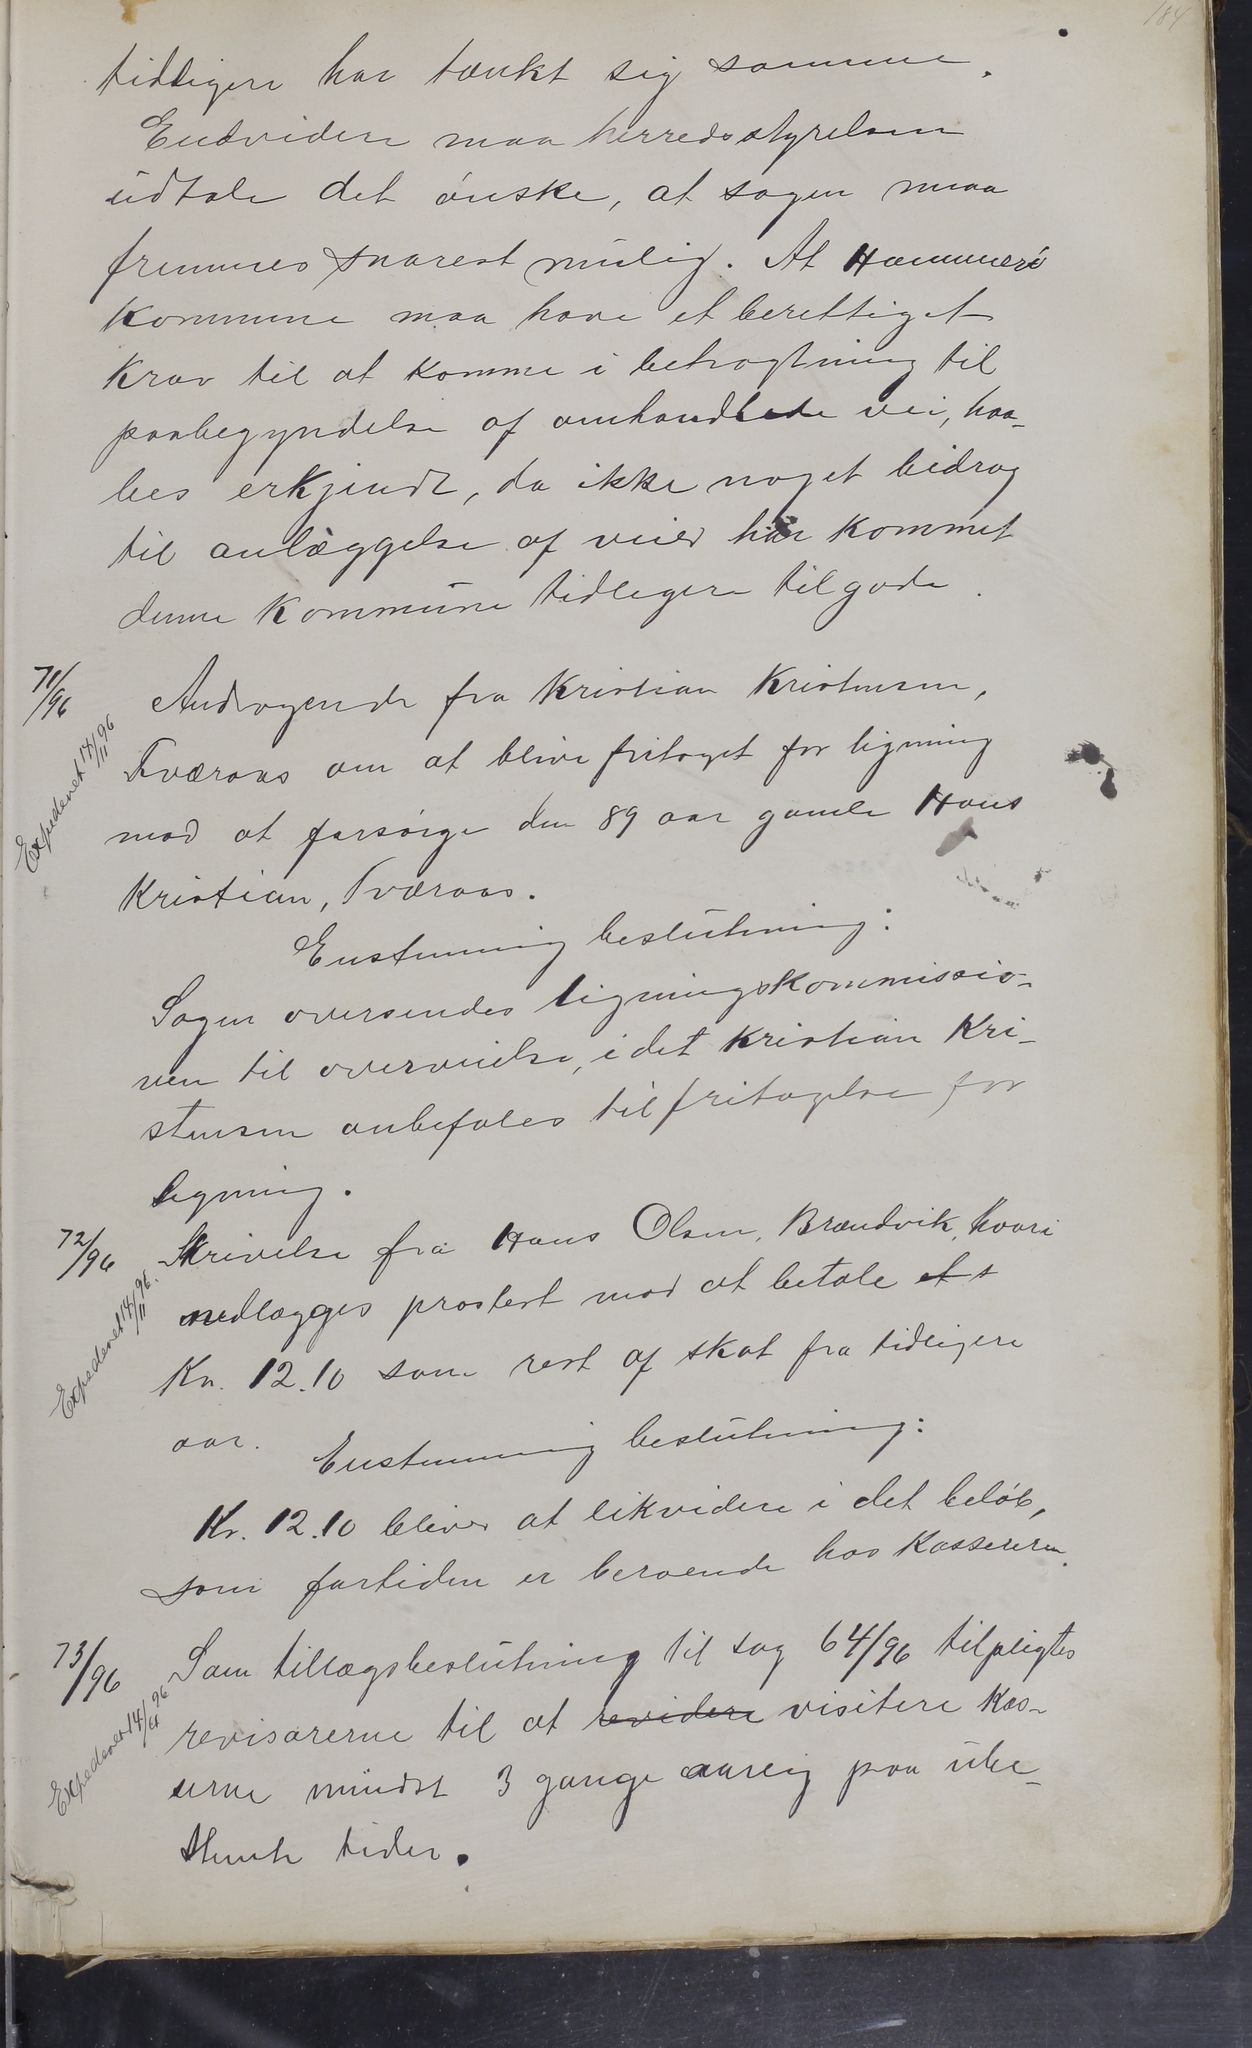 184
tidligere har tænkt sig samme.
Endvidere maa herredsstyrelsen
udtale det ønske, at sagen maa
fremmes snarest mulig. At Hammerø
Kommune maa have et berettiget
Krav til at komme i betragtning til
paabegyndelse af omhandlede vei, haa-
bes erkjendt, da ikke noget bidrag
til anlæggelse af veier har kommet
denne Kommune tidligere tilgode.
71/96 Andragende fra Kristian Kristensen,
Expederet 14/11 96
Tværaas om at blive fritaget for ligning
mod at forsørge den 89 aar gamle Hans
Kristian, Tværaas.
Enstemmig beslutning:
Sagen oversendes ligningskommissio-
nen til overveielse, idet Kristian Kri-
stensen anbefales til fritagelse for
ligning.
72/96 Skrivelse fra Hans Olsen, Brændvik, hvori
Expederet 14/11 96.
nedlægges protest mod at betale et
Kr. 12.10 som rest af skat fra tidligere
aar.
Enstemmig beslutning:
Kr. 12.10 bliver at likvidere i det beløb,
som fortiden er beroende hos Kassereren.
73/96 Som tillægsbeslutning til sag 64/96 tilpligtes
Expederet 14/11 96
revisorerne til at revidere visitere Kas-
serne mindst 3 gange aarlig paa ube-
stemte tider.